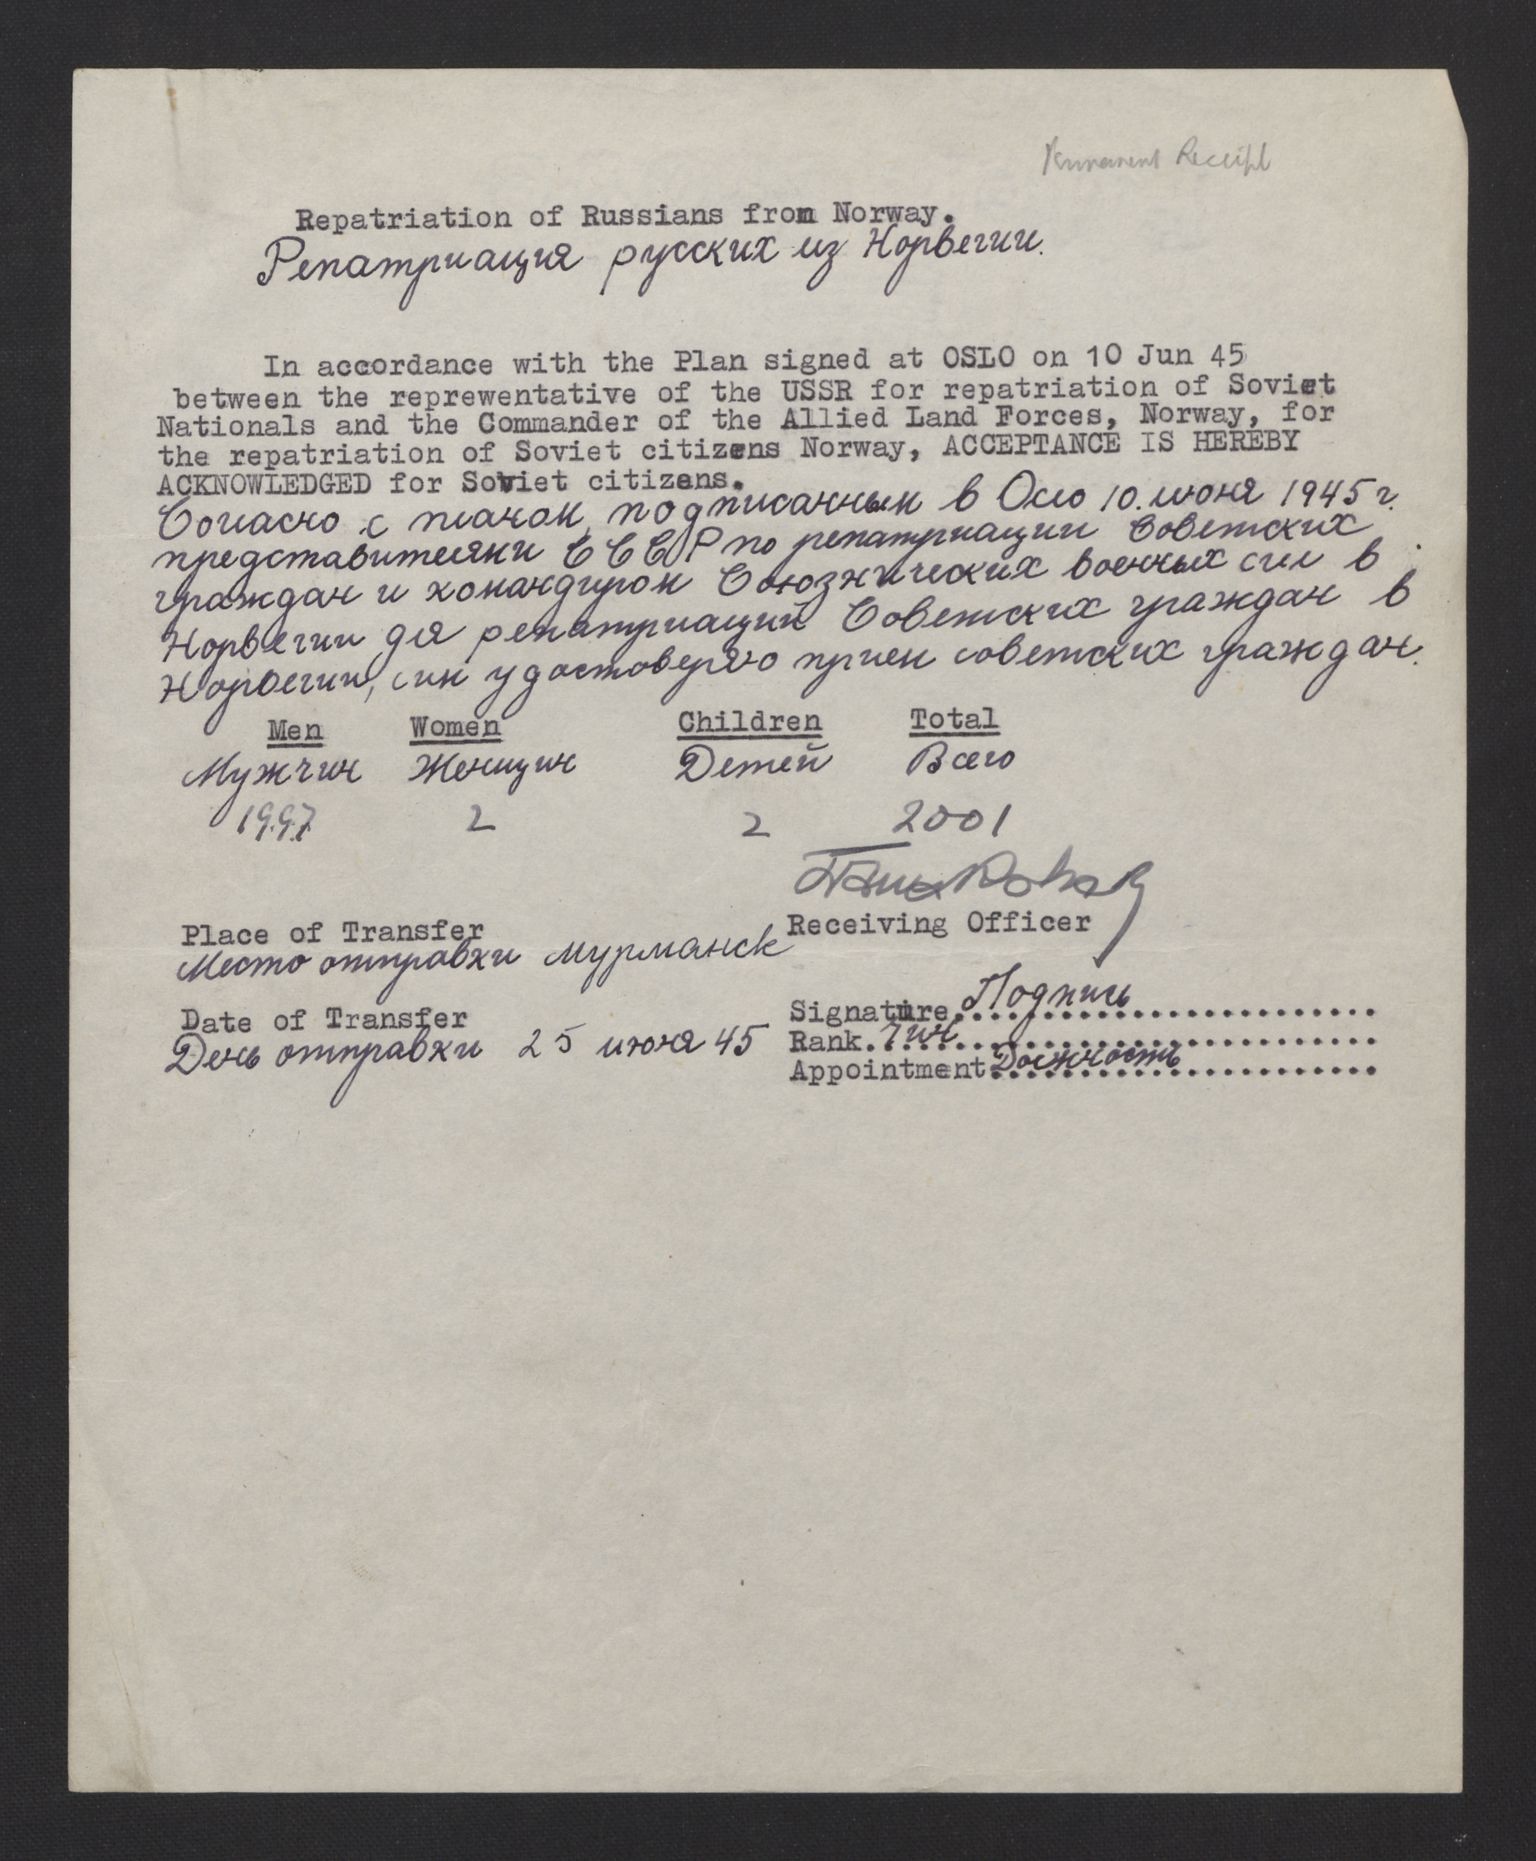 Permanent Receipt
Repatriation of Russians from Norway.
Репатриация русских из Норвегии.
In accordance with the Plan signed at OSLO on 10 Jun 45
between the reprewentative of the USSR for repatriation of Soviet
Nationals and the Commander of the Allied Land Forces, Norway, for
the repatriation of Soviet citizens Norway, ACCEPTANCE IS HEREBY
ACKNOWLEDGED for Soviet citizens.
Согласно с планом, подписанным в Осло 10. июня 1945 г.
представителями СССР по репатриации Советских
граждан и командиром Союзнических военных сил в
Норвегии для репатриаций Советских граждан в
Норвегии, сим удостоверяю прием советских граждан.
Men Women Children Total
Мужчин Женщин Детей Всего
1997 2 2 2001
Receiving Officer
Place of Transfer
Место отправки Мурманск
Signature. Подпись
Date of Transfer
День отправки 25 июня 45
Rank. Чин
Appointment. Должность